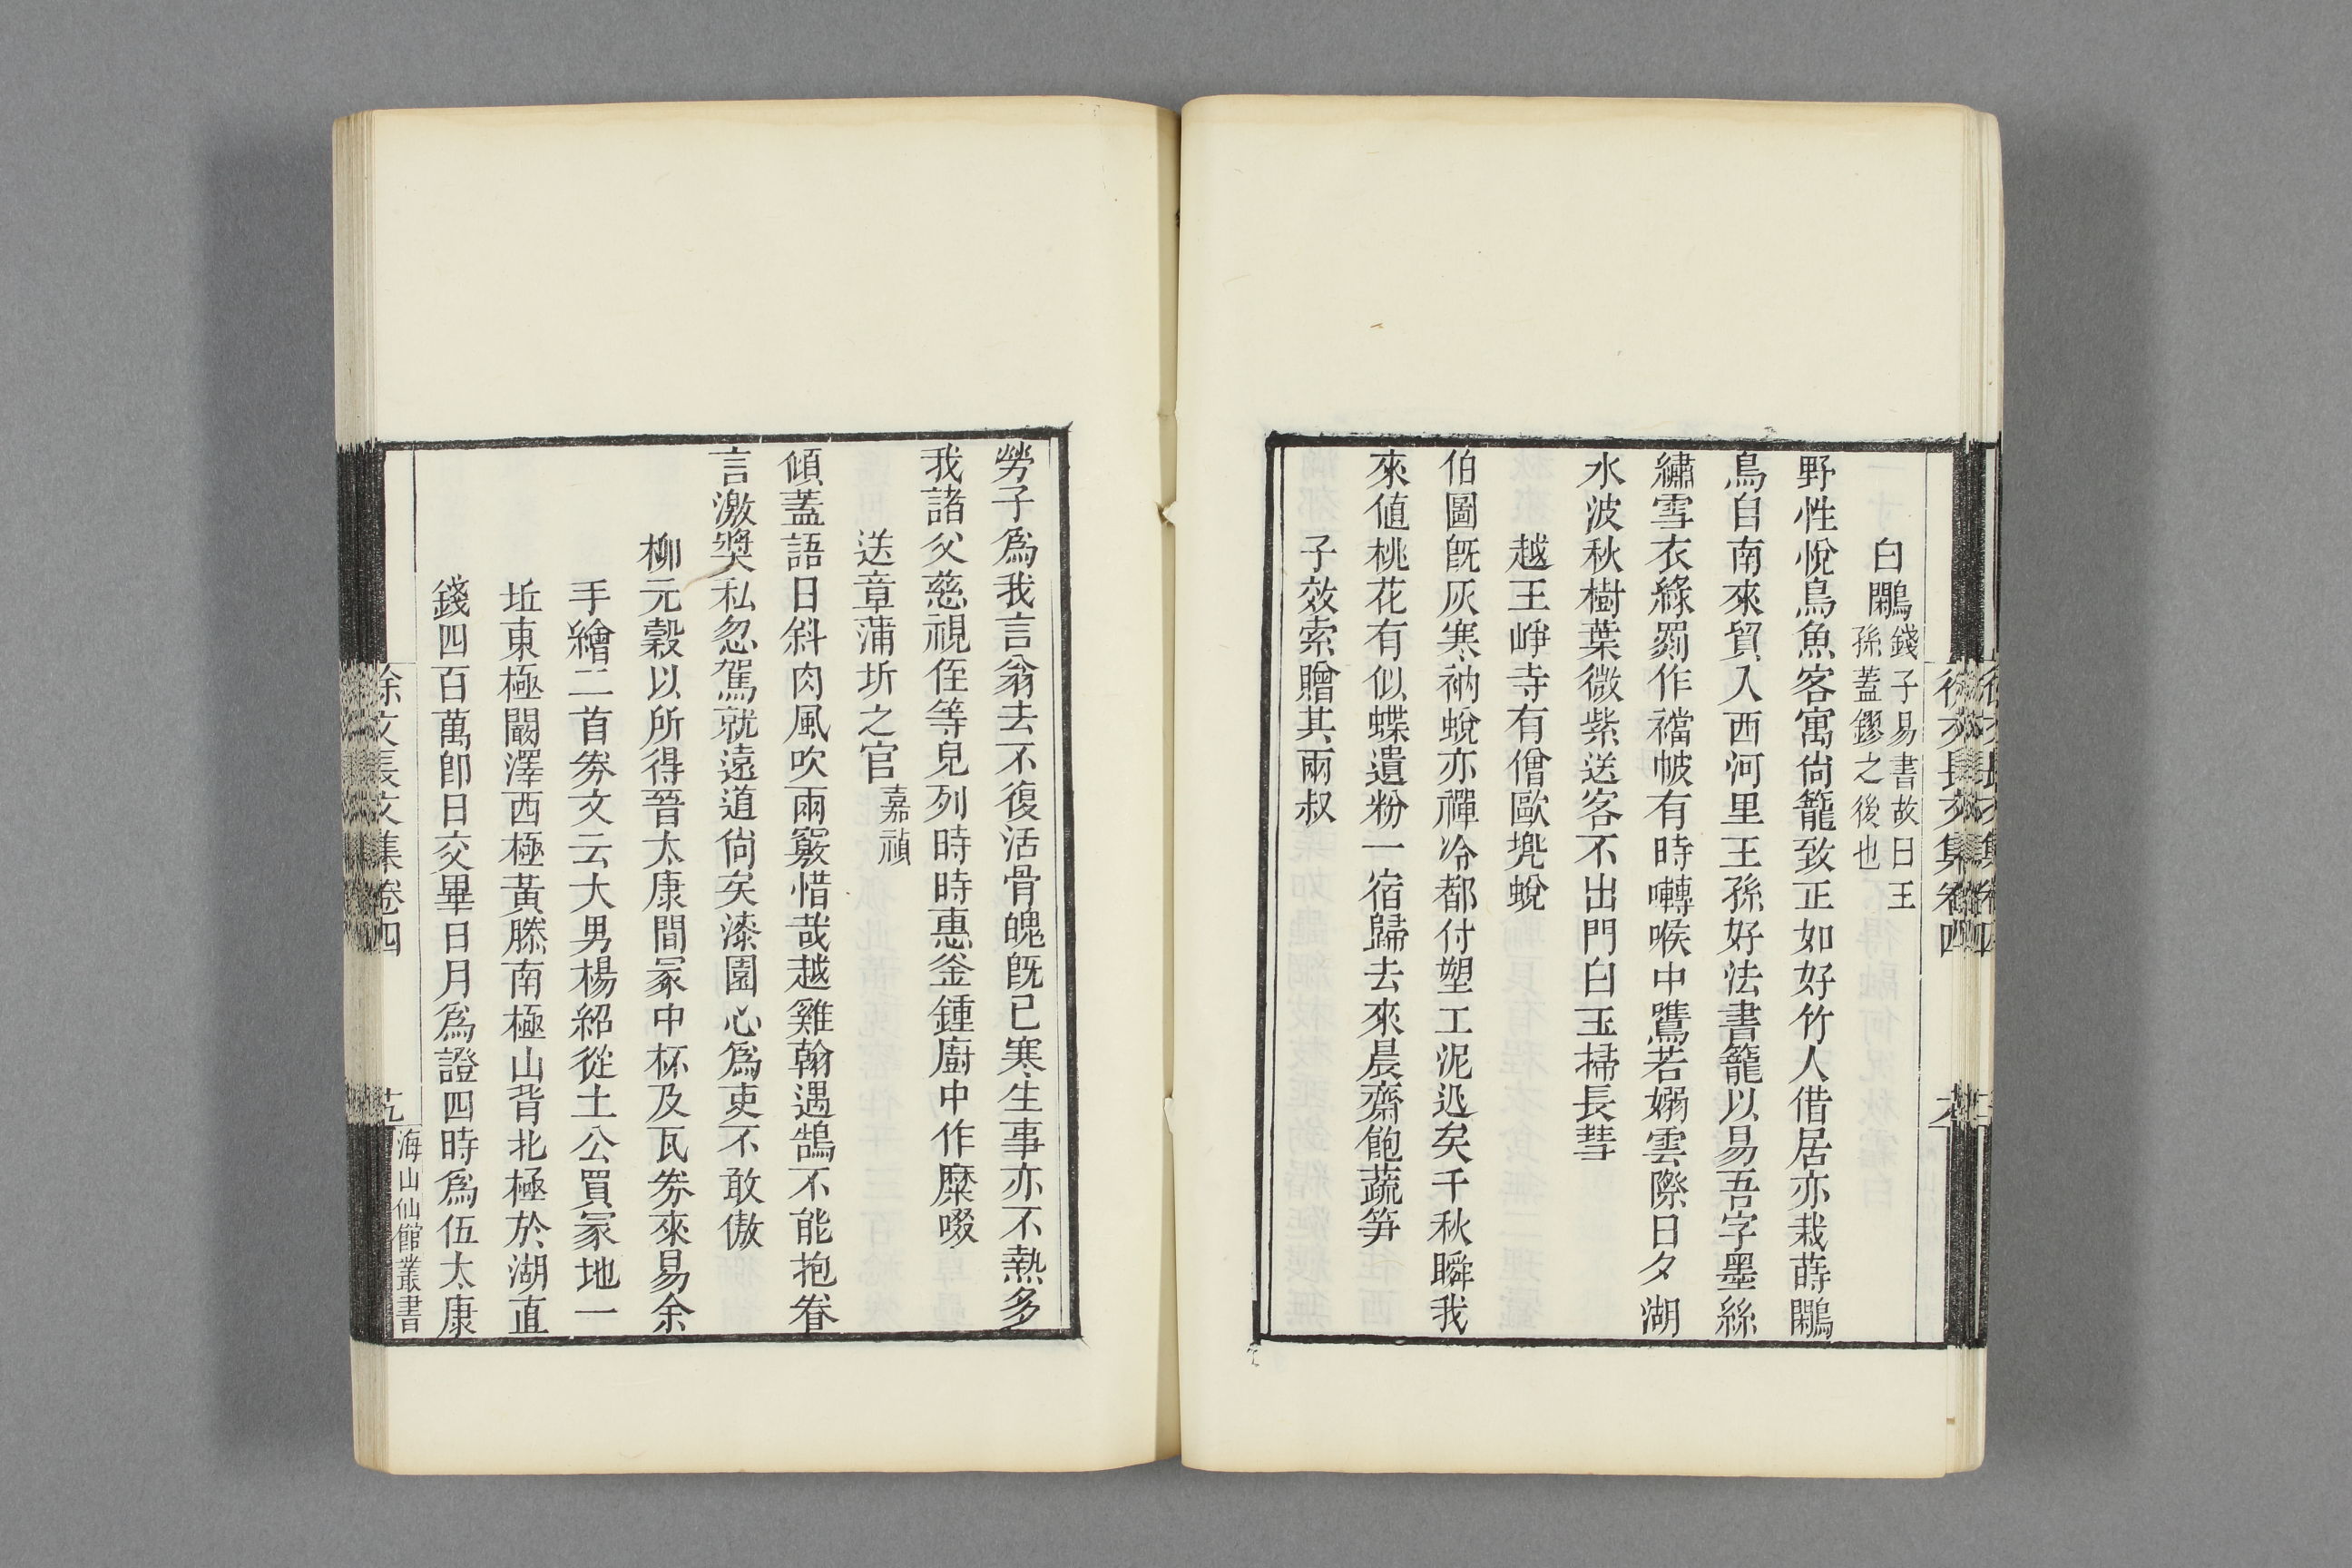 白鷴錢子易書故曰王
孫蓋鏐之後也
野性悅鳥魚客寓尙籠致正如好竹人借居亦栽蒔鷴
鳥自南來貿入西河里王孫好法書籠以易吾字墨絲
繡雪衣綠罽作襠帔有時囀喉中鷕若嫋雲際日夕湖
水波秋樹葉微紫送客不出門白玉掃長彗
越王崢寺有僧歐兠蛻
伯圖旣灰寒衲蛻亦禪冷都付塑工泥迯矣千秋瞬我
來値桃花有似蝶遺粉一宿歸去來晨齋飽蔬笋
子效索贈其兩叔
勞子爲我言翁去不復活骨魄旣已寒生事亦不熱多
我諸父慈視侄等兒列時時惠釜鍾廚中作糜啜
送章蒲圻之官嘉禎
傾蓋語日斜肉風吹雨竅惜哉越雞翰遇鵠不能抱眷
言激奬私忽駕就遠道尙矣漆園心爲吏不敢傲
柳元穀以所得晉太康間冢中杯及瓦劵來易余
手繪二首劵文云大男楊紹從土公買冢地一
坵東極闞澤西極黃滕南極山背北極於湖直
錢四百萬卽日交畢日月爲證四時爲伍太康
徐文長文集卷四
九
海山仙館叢書